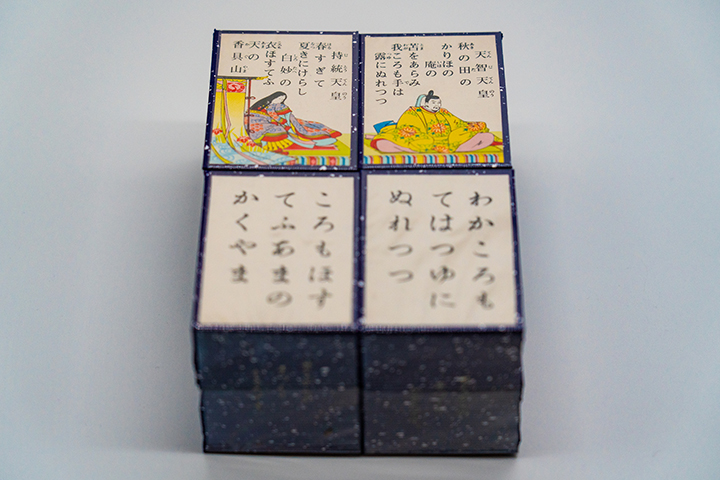 天智天皇
秋の田の
かりほの
庵の
苫をあらみ
我ころも手は
露にぬれつつ
持統天皇
春すぎて
夏きにけらし
白妙の
衣ほすてふ
天の
香具山
わかころも
てはつゆに
ぬれつつ
ころもほす
てふあまの
かくやま